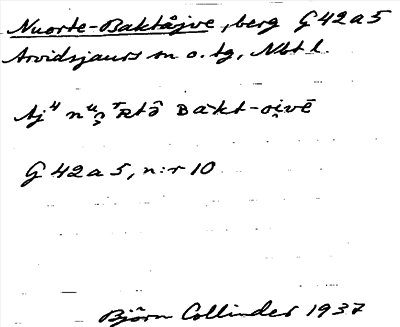 Nuorte-Baktåjve, berg G 42 a 5
Arvidsjaurs sn o. tg, Nbt l.
Aj
G 42 a 5, n:r 10
Björn Collinder 1937